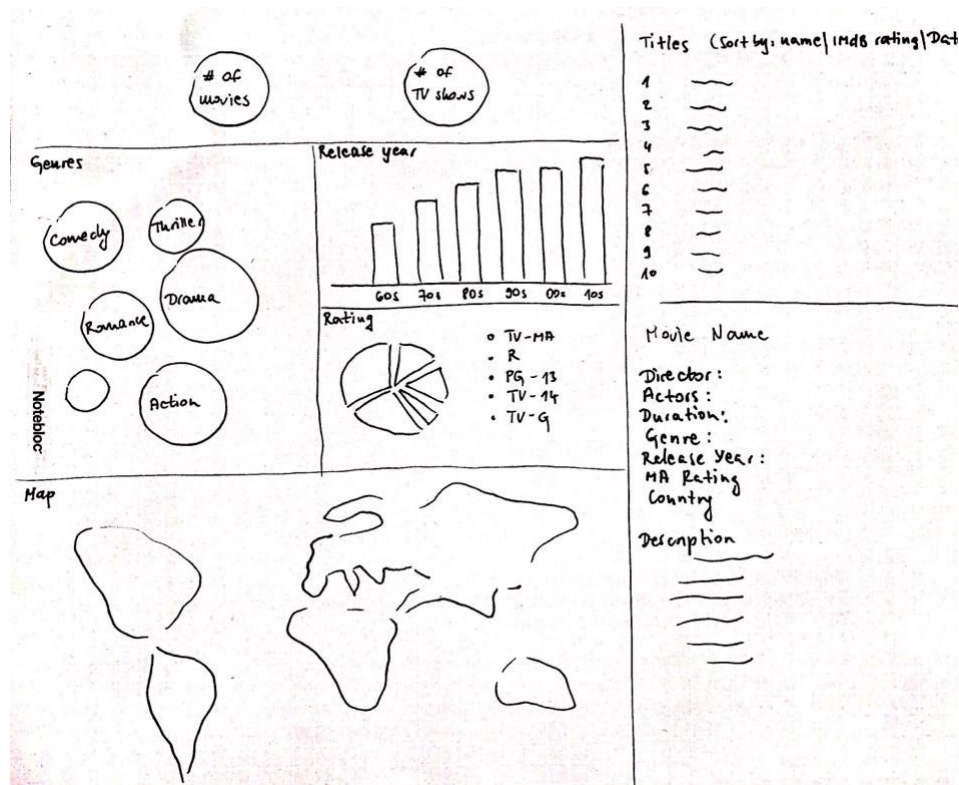 # of
movies
# of
TV shows
Genres
Comedy
Thriller
Drama
Romance
Action
Release year
60s 70s 80s 90s 00s 10s
Rating
TV-MA
R
PG-13
TV-14
TV-G
Map
Titles (Sort by: name|IMdB rating|Dat
1
2
3
4
5
6
7
8
9
10
Movie Name
Director:
Actors:
Duration:
Genre:
Release Year:
MA Rating
Country
Description
Notebloc